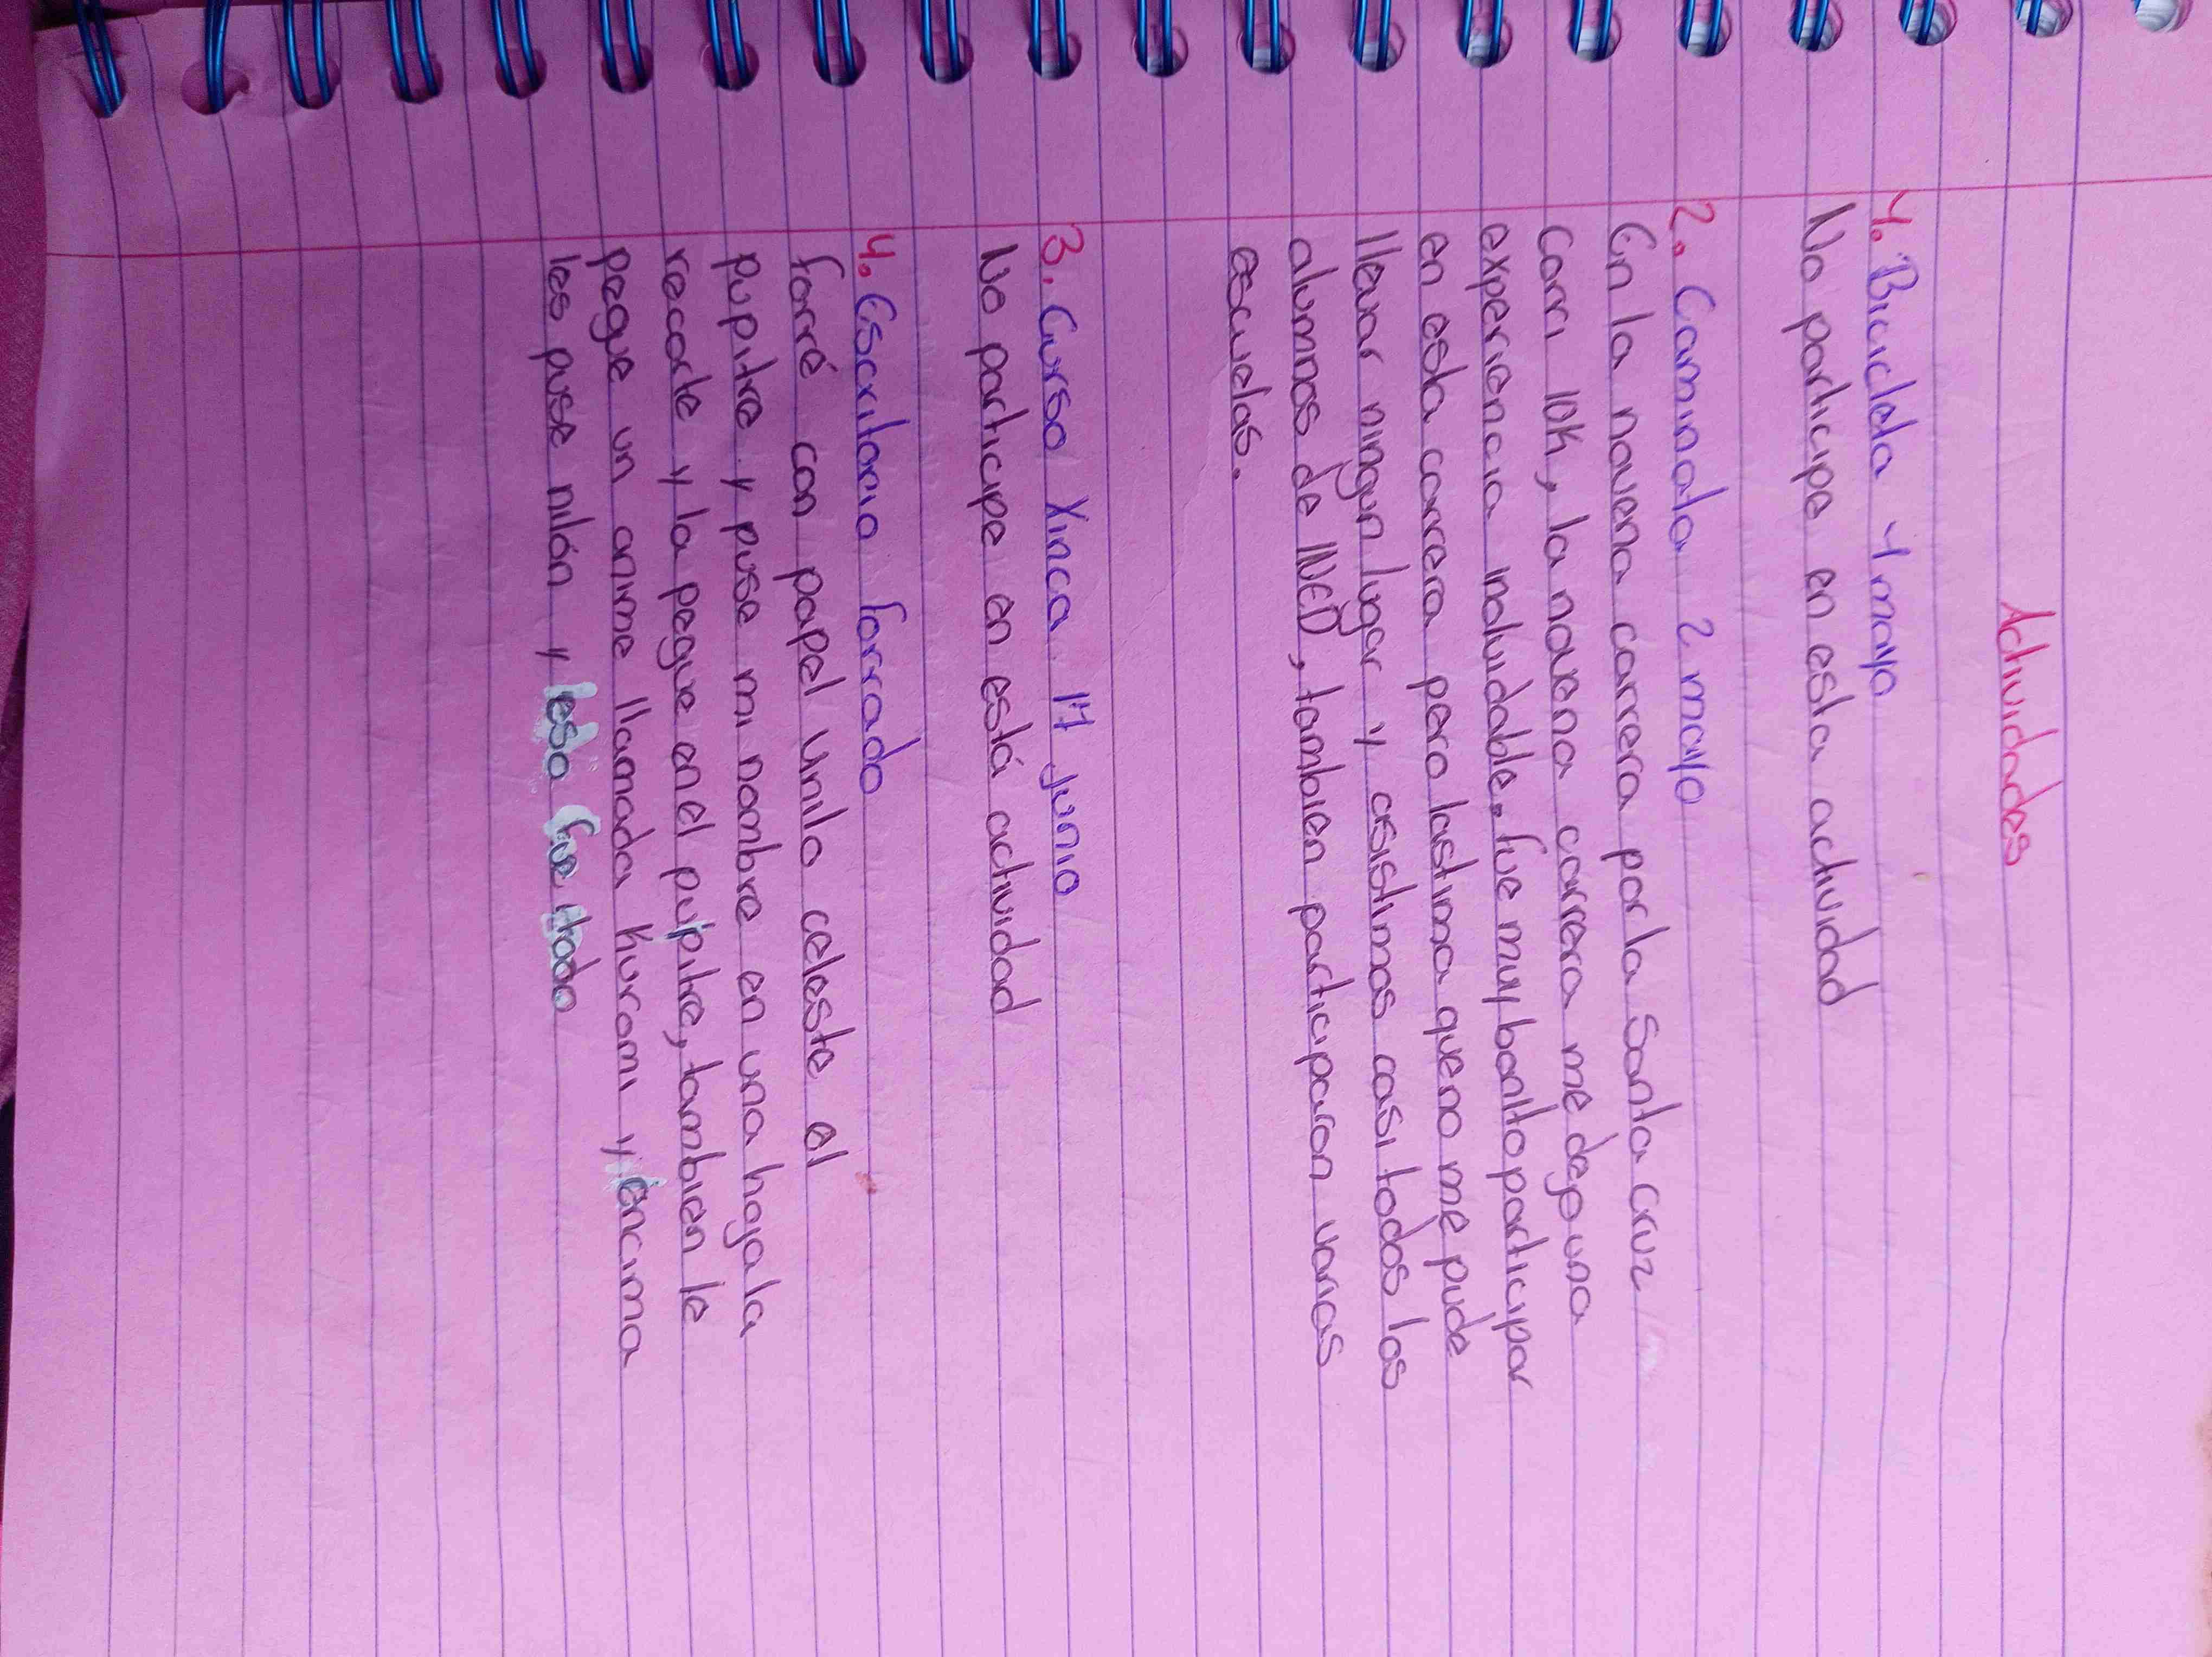 Actividades
1. Bicicleta 1 mayo
No participe en esta actividad
2. Caminata 2 mayo
En la novena carrera por la Santa Cruz
Corri 10K, la novena carrera me dejo una
experiencia inolvidable. fue muy bonito participar
en esta carrera pero lastima que no me pude
llevar ningun lugar y asistimos casi todos los
alumnos de INED, tambien participaron varias
escuelas.
3. Curso Xinca 17 junio
No participe en está actividad
4. Escritorio forrado
forré con papel vinilo celeste el
pupitre y puse mi nombre en una hoja la
recorte y la pegue en el pupitre, tambien le
pegue un anime llamada Kuromi y encima
les puse nilón y eso fue todo